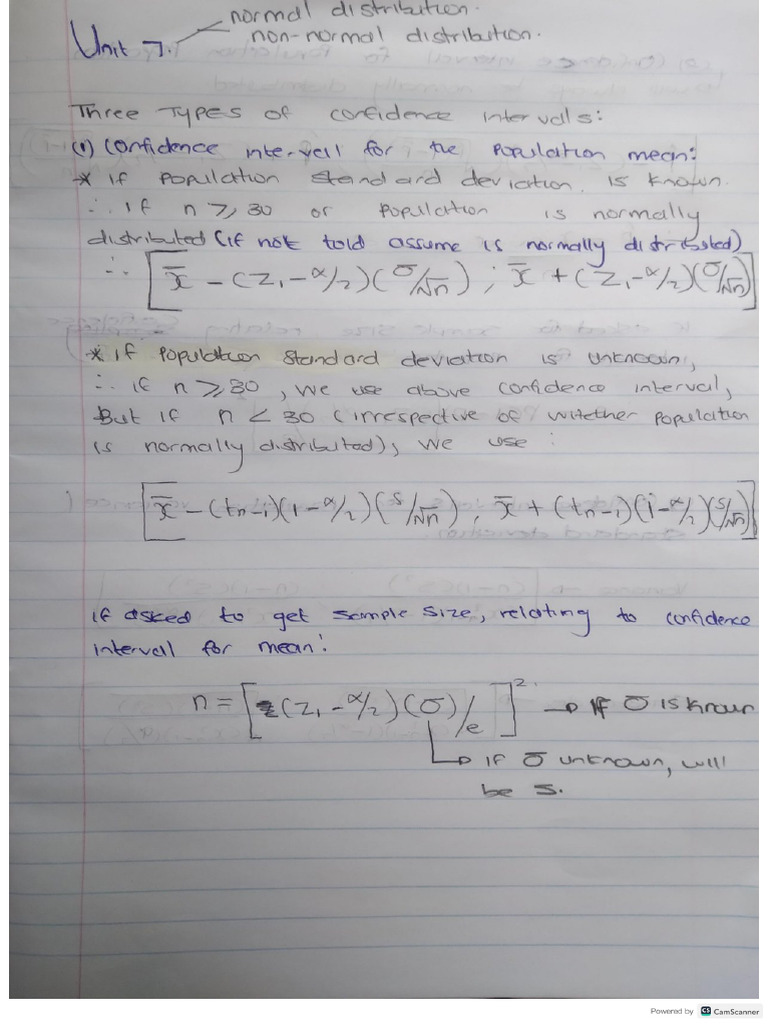 normal distribution.
Unit 7. non-normal distribution.
Three Types of confidence intervals:
(1) Confidence intervall for the Population mean:
* if Population Standard deviation is known.
∴ if n ≥ 30 or Population is normally
distributed (if not told assume is normally distributed)
∴ [x̄ - (Z₁-α/2)(σ/√n) ; x̄ + (Z₁-α/2)(σ/√n)]
* if Population Standard deviation is unknown,
∴ if n ≥ 30, we use above confidence interval,
But if n < 30 (irrespective of whether population
is normally distributed), we use :
[x̄ - (tn-1)(1-α/2)(s/√n) ; x̄ + (tn-1)(1-α/2)(s/√n)]
if asked to get sample size, relating to confidence
intervall for mean:
n = [(Z₁-α/2)(σ)/e]². → If σ is known
→ if σ unknown, will
be s.
Powered by CS CamScanner